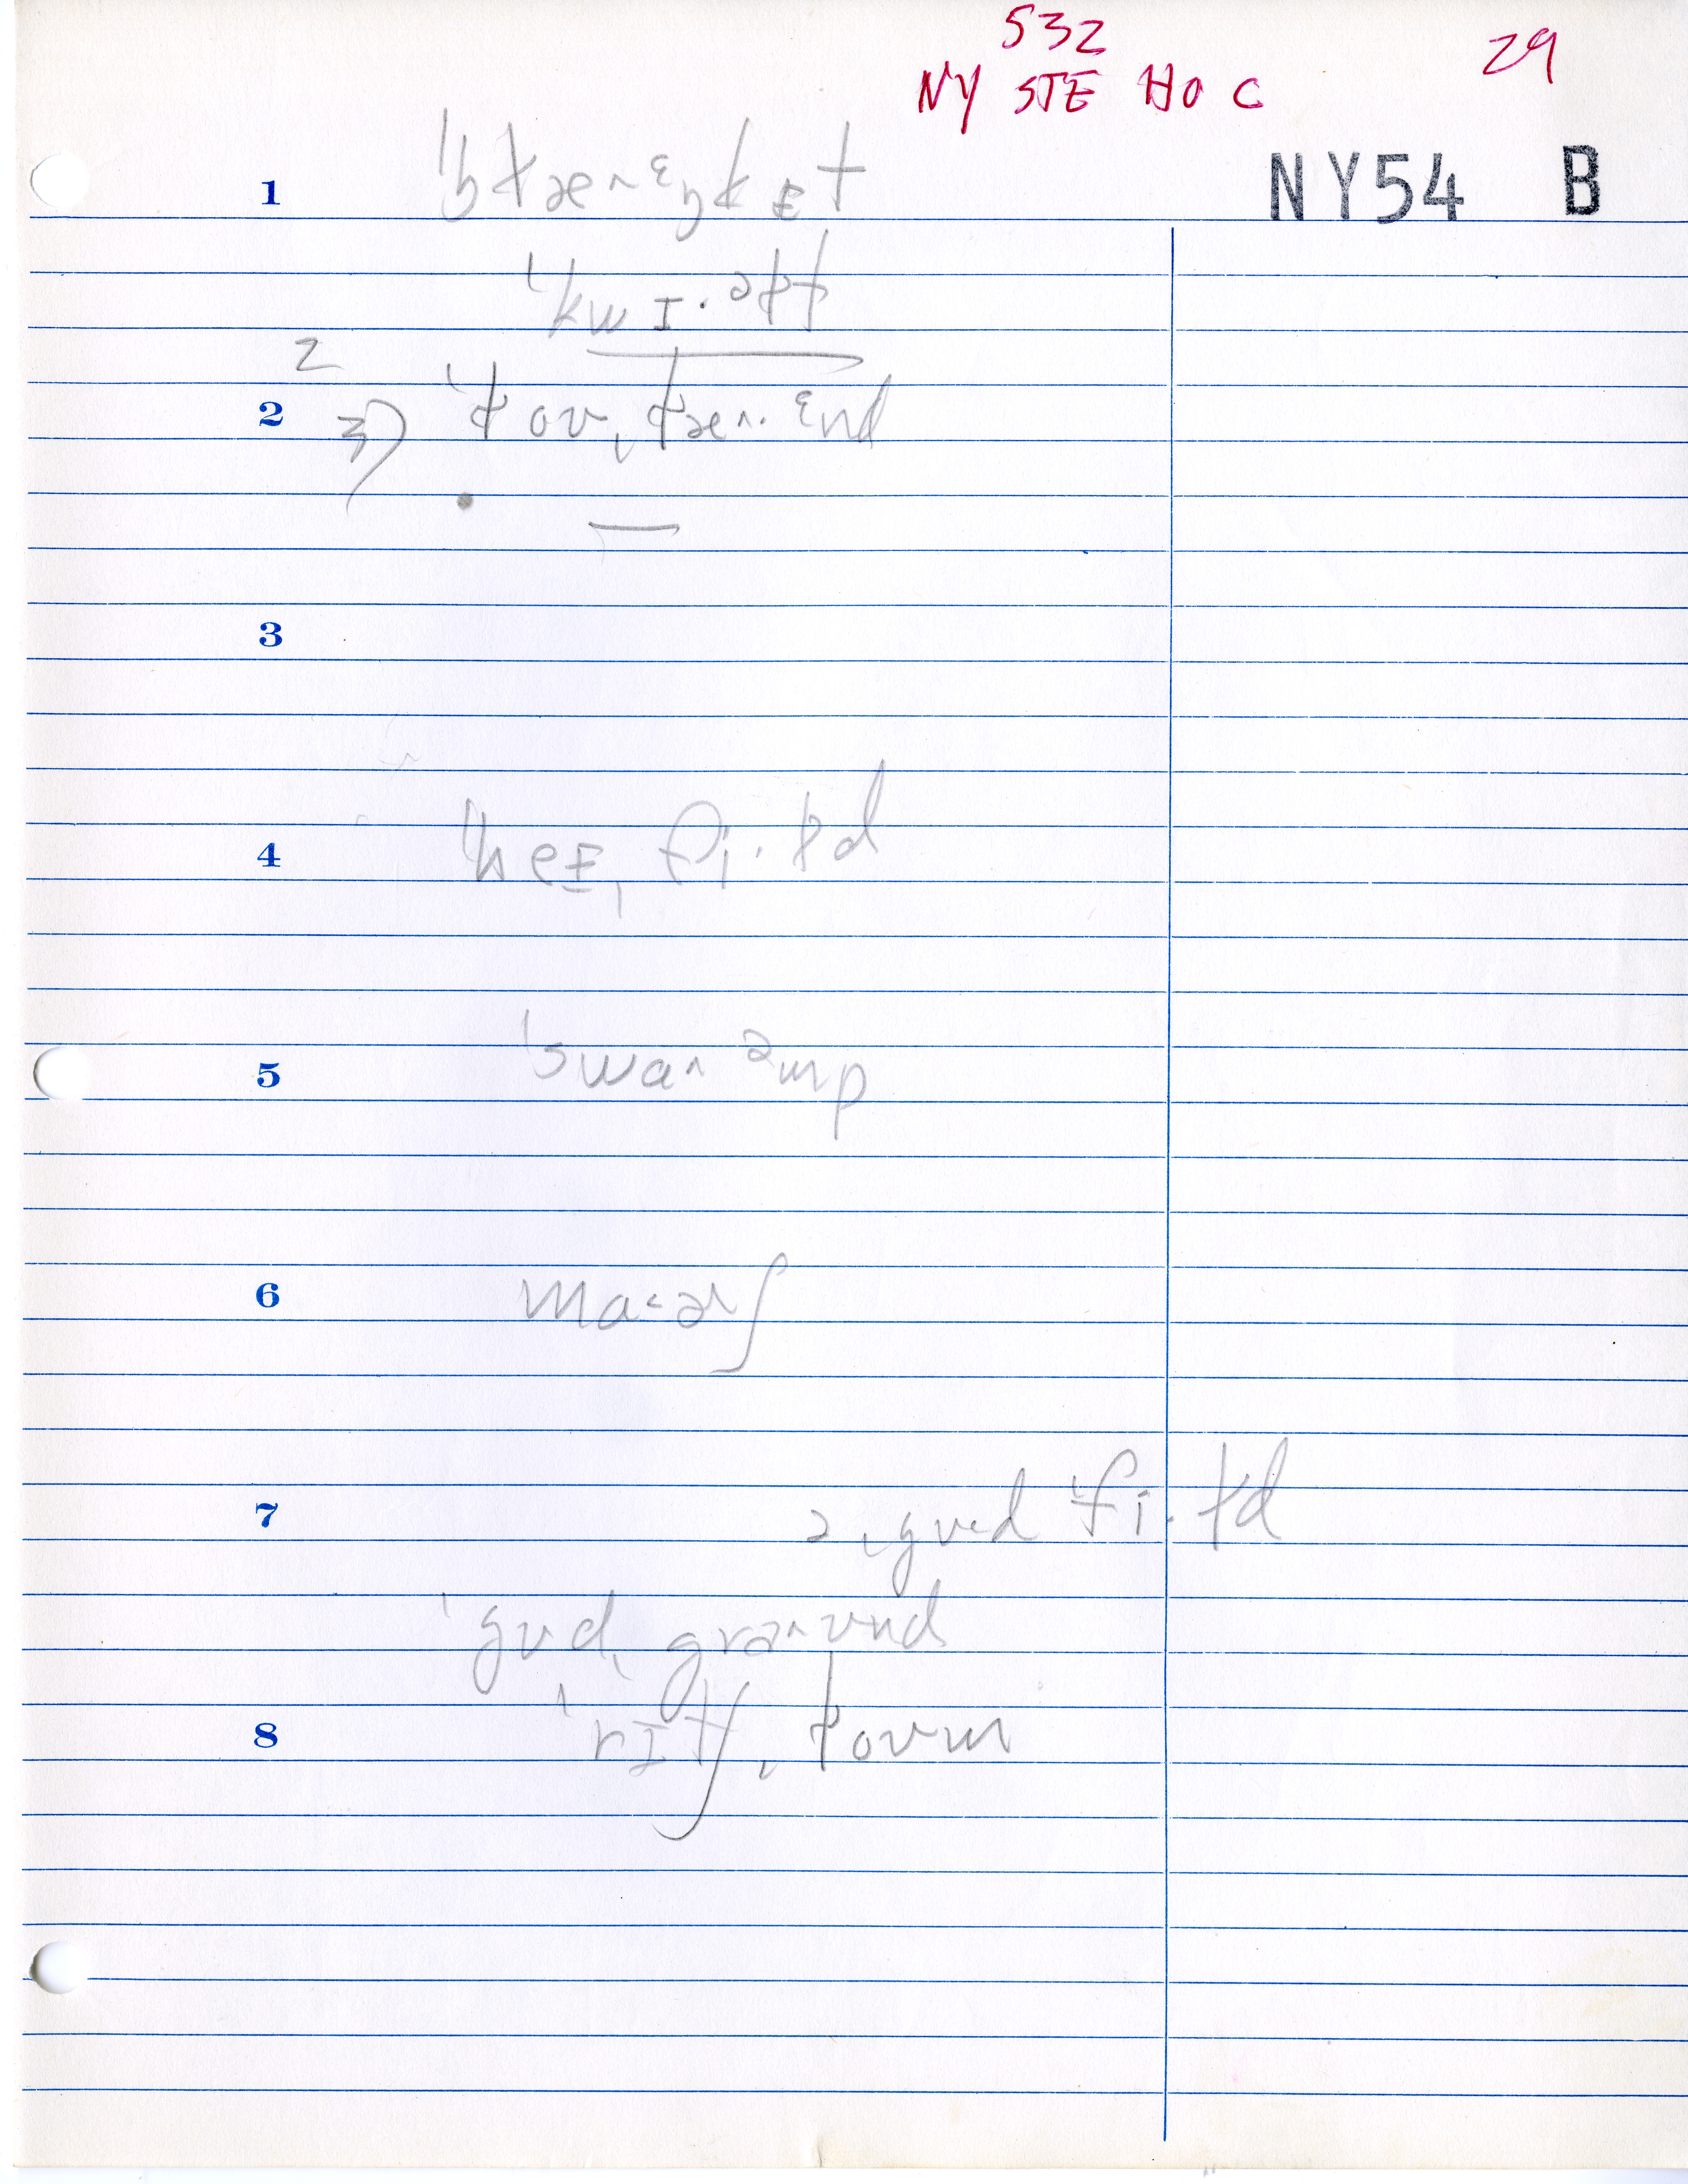 532
29
NY STE HO C
NY54 B
1 ˈbɫæ˄ᵋŋkᵻt
ˈkwɪ·əɫt
2
2 3) ˈɫoʊˌɫæ˄·ᵋnd
3
4 ˈheɪˌfi·ɫd
5 ˈswa˄ᵊmp
6 ma˂ə˄ʃ
7 əˌgʊ˂d ˈfi·ɫd
ˈgʊdˌgra˄ʊnd
8 ˈrɪtʃˌɫoʊm